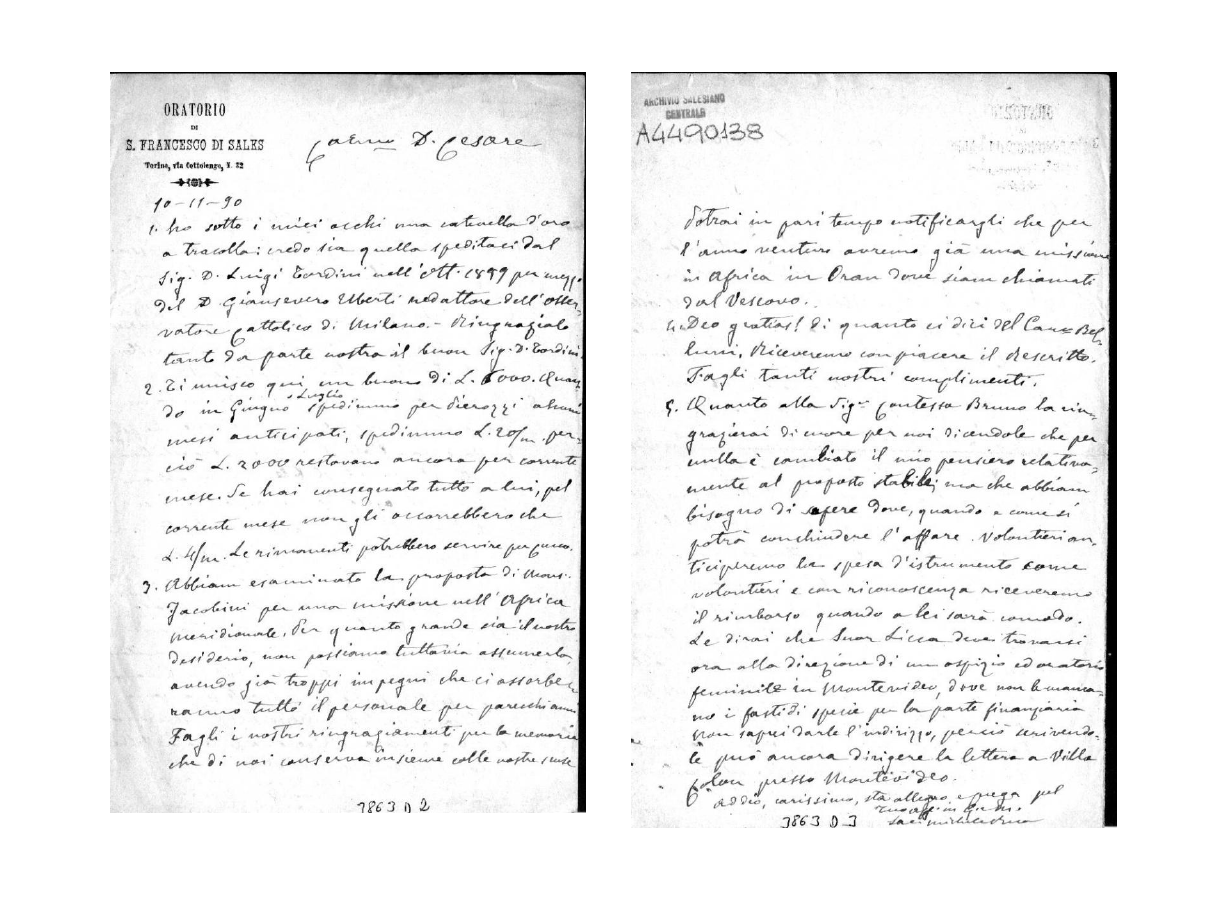 ORATORIO
DI
S. FRANCESCO DI SALES
Torino, via Cottolengo, N. 32
Car.mo D. Cesare
10-11-90
1. ho sotto i miei occhi una catenella d'oro
a tracolla: credo sia quella speditaci dal
Sig. D. Luigi Tordini nell'Ott. 1889 per mezzo
del D. Giansevero Uberti redattore dell'Osser-
vatore Cattolico di Milano. - Ringrazialo
tanto da parte nostra il buon Sig. D. Tordini
2. Ti unisco qui un buono di L. 6000. Quan-
do in Giugno o Luglio spedimmo per alcuni
mesi anticipati, spedimmo L. 20/m. per-
ciò L. 2000 restavano ancora per corrente
mese. Se hai consegnato tutto a lui, pel
corrente mese non gli occorrebbero che
L. 4/m. Le rimanenti potrebbero servire per
3. Abbiam esaminato la proposta di Mons.
Jacobini per una missione nell'Africa
Meridionale. Per quanto grande sia il nostro
desiderio, non possiamo tuttavia assumerla,
avendo già troppi impegni che ci assorbe-
ranno tutto il personale per parecchi anni
Fagli i nostri ringraziamenti per la memoria
che di noi conserva insieme colle nostre scuse
3863 D 2
ARCHIVIO SALESIANO
CENTRALE
A4490138
Potrai in pari tempo notificargli che per
l'anno venturo avremo già una missione
in Africa in Oran dove siam chiamati
dal Vescovo.
4. Deo gratias! di quanto ci dici del Can.co Bel-
luni, Riceveremo con piacere il Rescritto.
Fagli tanti nostri complimenti.
5. Quanto alla Sig.ra Contessa Bruno la rin-
grazierai di cuore per noi dicendole che per
nulla è cambiato il mio pensiero relativa-
mente al proposto stabile; ma che abbiam
bisogno di sapere dove, quando e come si
potrà conchiudere l'affare. Volontieri an-
ticiperemo la spesa d'istrumento come
volontieri e con riconoscenza riceveremo
il rimborso quando a lei sarà comodo.
Le dirai che Suor Licca deve trovarsi
ora alla direzione di un ospizio ed oratorio
feminile in Montevideo, dove non le manca-
no i fastidi specie per la parte finanziaria
Non saprei darle l'indirizzo, perciò scrivendo-
le può ancora dirigere la lettera a Villa
Colon presso Montevideo.
Addio, carissimo, sta allegro e prega pel
tuo aff. in G. e M.
Sac. Michele Rua
3863 D 3